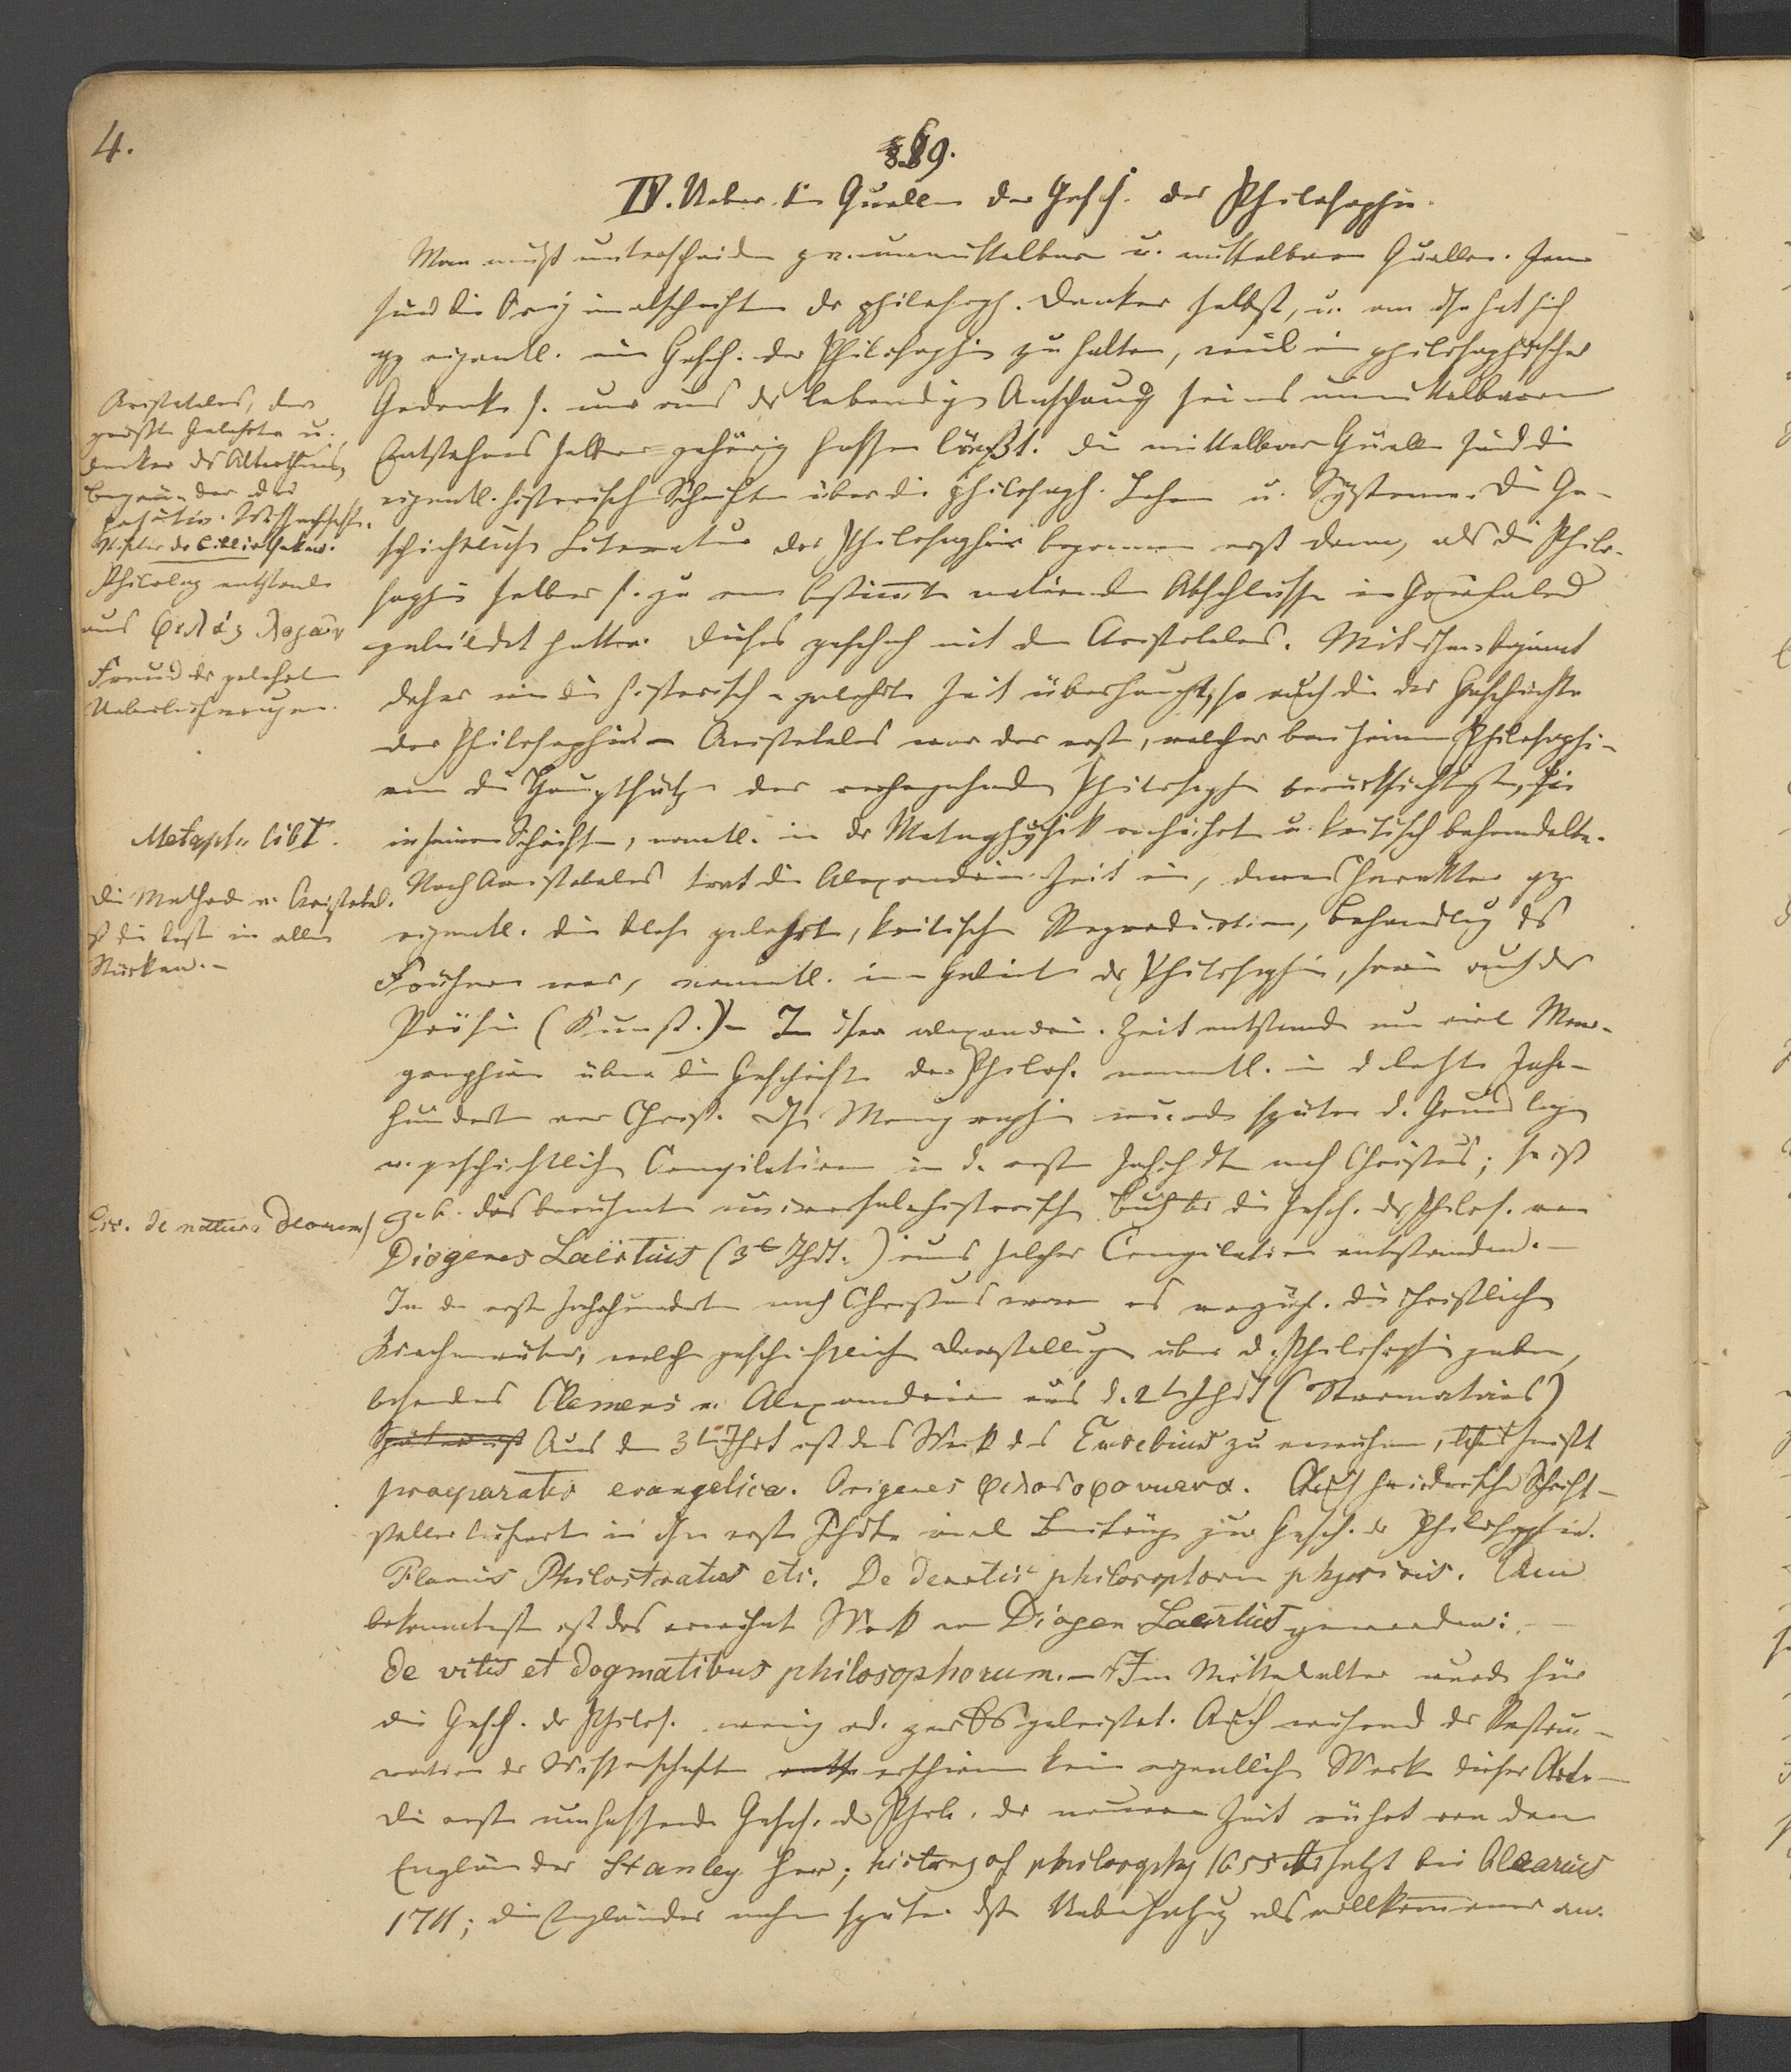 4.
§9.
IV. Ueber die Quellen der Gesch. der Philosophie.
Man muß unterscheiden zw. unmittelbare u. mittelbare Quellen. Jene
sind die Originalschriften der philosoph. Denker selbst, u. an diese hat sich
eigentl. eine Gesch. der Philosophie zu halten, weil ein philosophischer
Gedanke s. nur aus der lebendigen Anschauung seines unmittelbaren
Entstehens selber gehörig fassen läßt. Die mittelbaren Quellen sind die
eigentl. historischen Schriften über die philosoph. Lehren u. Systeme. Die Ge-
schichtliche Literatur der Philosophie begann erst dann, als die Philo-
sophie selber s. zu einem bestimmten Abschlusse in Griechenland
gebildet hatte. Dieses geschah mit dem Aristoteles. Mit ihm beginnt
daher wie die historisch-gelehrte Zeit überhaupt, so auch die der Geschichte
der Philosophie. – Aristoteles war der erste, welcher bei seinem Philosophi-
ren die Hauptsätze der vorhergehenden Philosophen berücksichtigte, sie
in seinen Schriften, namtl. in der Metaphysik anführte u. kritisch behandelte.
Nach Aristoteles trat die Alexandrin. Zeit ein, deren Charakter
eigentl. die bloße gelehrte, kritische Reproduction, Behandlung des
Frühern war, namentl. im Gebiete der Philosophie, sowie auch der
Poesie (Kunst.) – In dieser alexandrin. Zeit entstanden nun viele Mono-
graphien über die Geschichte der Philos. namentl. in d letzten Jahr-
hunderten vor Christ. Diese Monographien wurden später d. Grundlage
v. geschichtlichen Compilationen in d. ersten Jahrhdten nach Christus; so ist
z. B. das berühmte universalhistorische Buch über die Gesch. der Philos. von
Diogenes Laërtius (3t Jhdt.) aus solcher Compilation entstanden. –
In den ersten Jahrhunderten nach Christus waren es vorzügl. die christlichen
Kirchenväter, welche geschichtliche Darstellungen über d. Philosophie gaben,
besonders Clemens v. Alexandrien aus d. 2t Jhdt (Stromatais)
Aus dem 3t Jhdt ist das Werk des Eusebius zu erwähnen, heißt
praeparatio evangelica. Origenes φιλοσοφουμενα. Auch heidnische Schrift-
steller lieferten in den ersten Jhdten viele Beiträge zur Gesch. der Philosophie.
Flavius Philostratus etc. De philosophorum physicis. Am
bekanntesten ist das erwähnte Werk von Diogen Laertius geworden:
de vitis et dogmatibus philosophorum. – Im Mittelalter wurde für
die Gesch. der Philos. wenig od. gar Nichts geleistet. Auch während der Restau-
ration der Wissenschaften erschien kein eigentliches Werk dieser Art. –
Die erste umfassende Gesch. der Phil. der neuern Zeit rührt von dem
Engländer Stanley her; history of philosophy 1655 übersetzt bei Olearius
1711; die Engländer nahmen später diese Uebersetzung als vollkommener an.
Aristoteles, der
größte Gelehrte u.
Denker des Alterthums,
Begründer der
positiv. Wissenschaft.
Stifter der Bibliotheken.
Philolog entstanden
aus φιλος λογων
Freund der gelehrten
Ueberlieferungen.
Metaph. lib I.
Die Methode v. Aristotel.
ist die beste in allen
Stücken. –
Cic. de natura Deorum